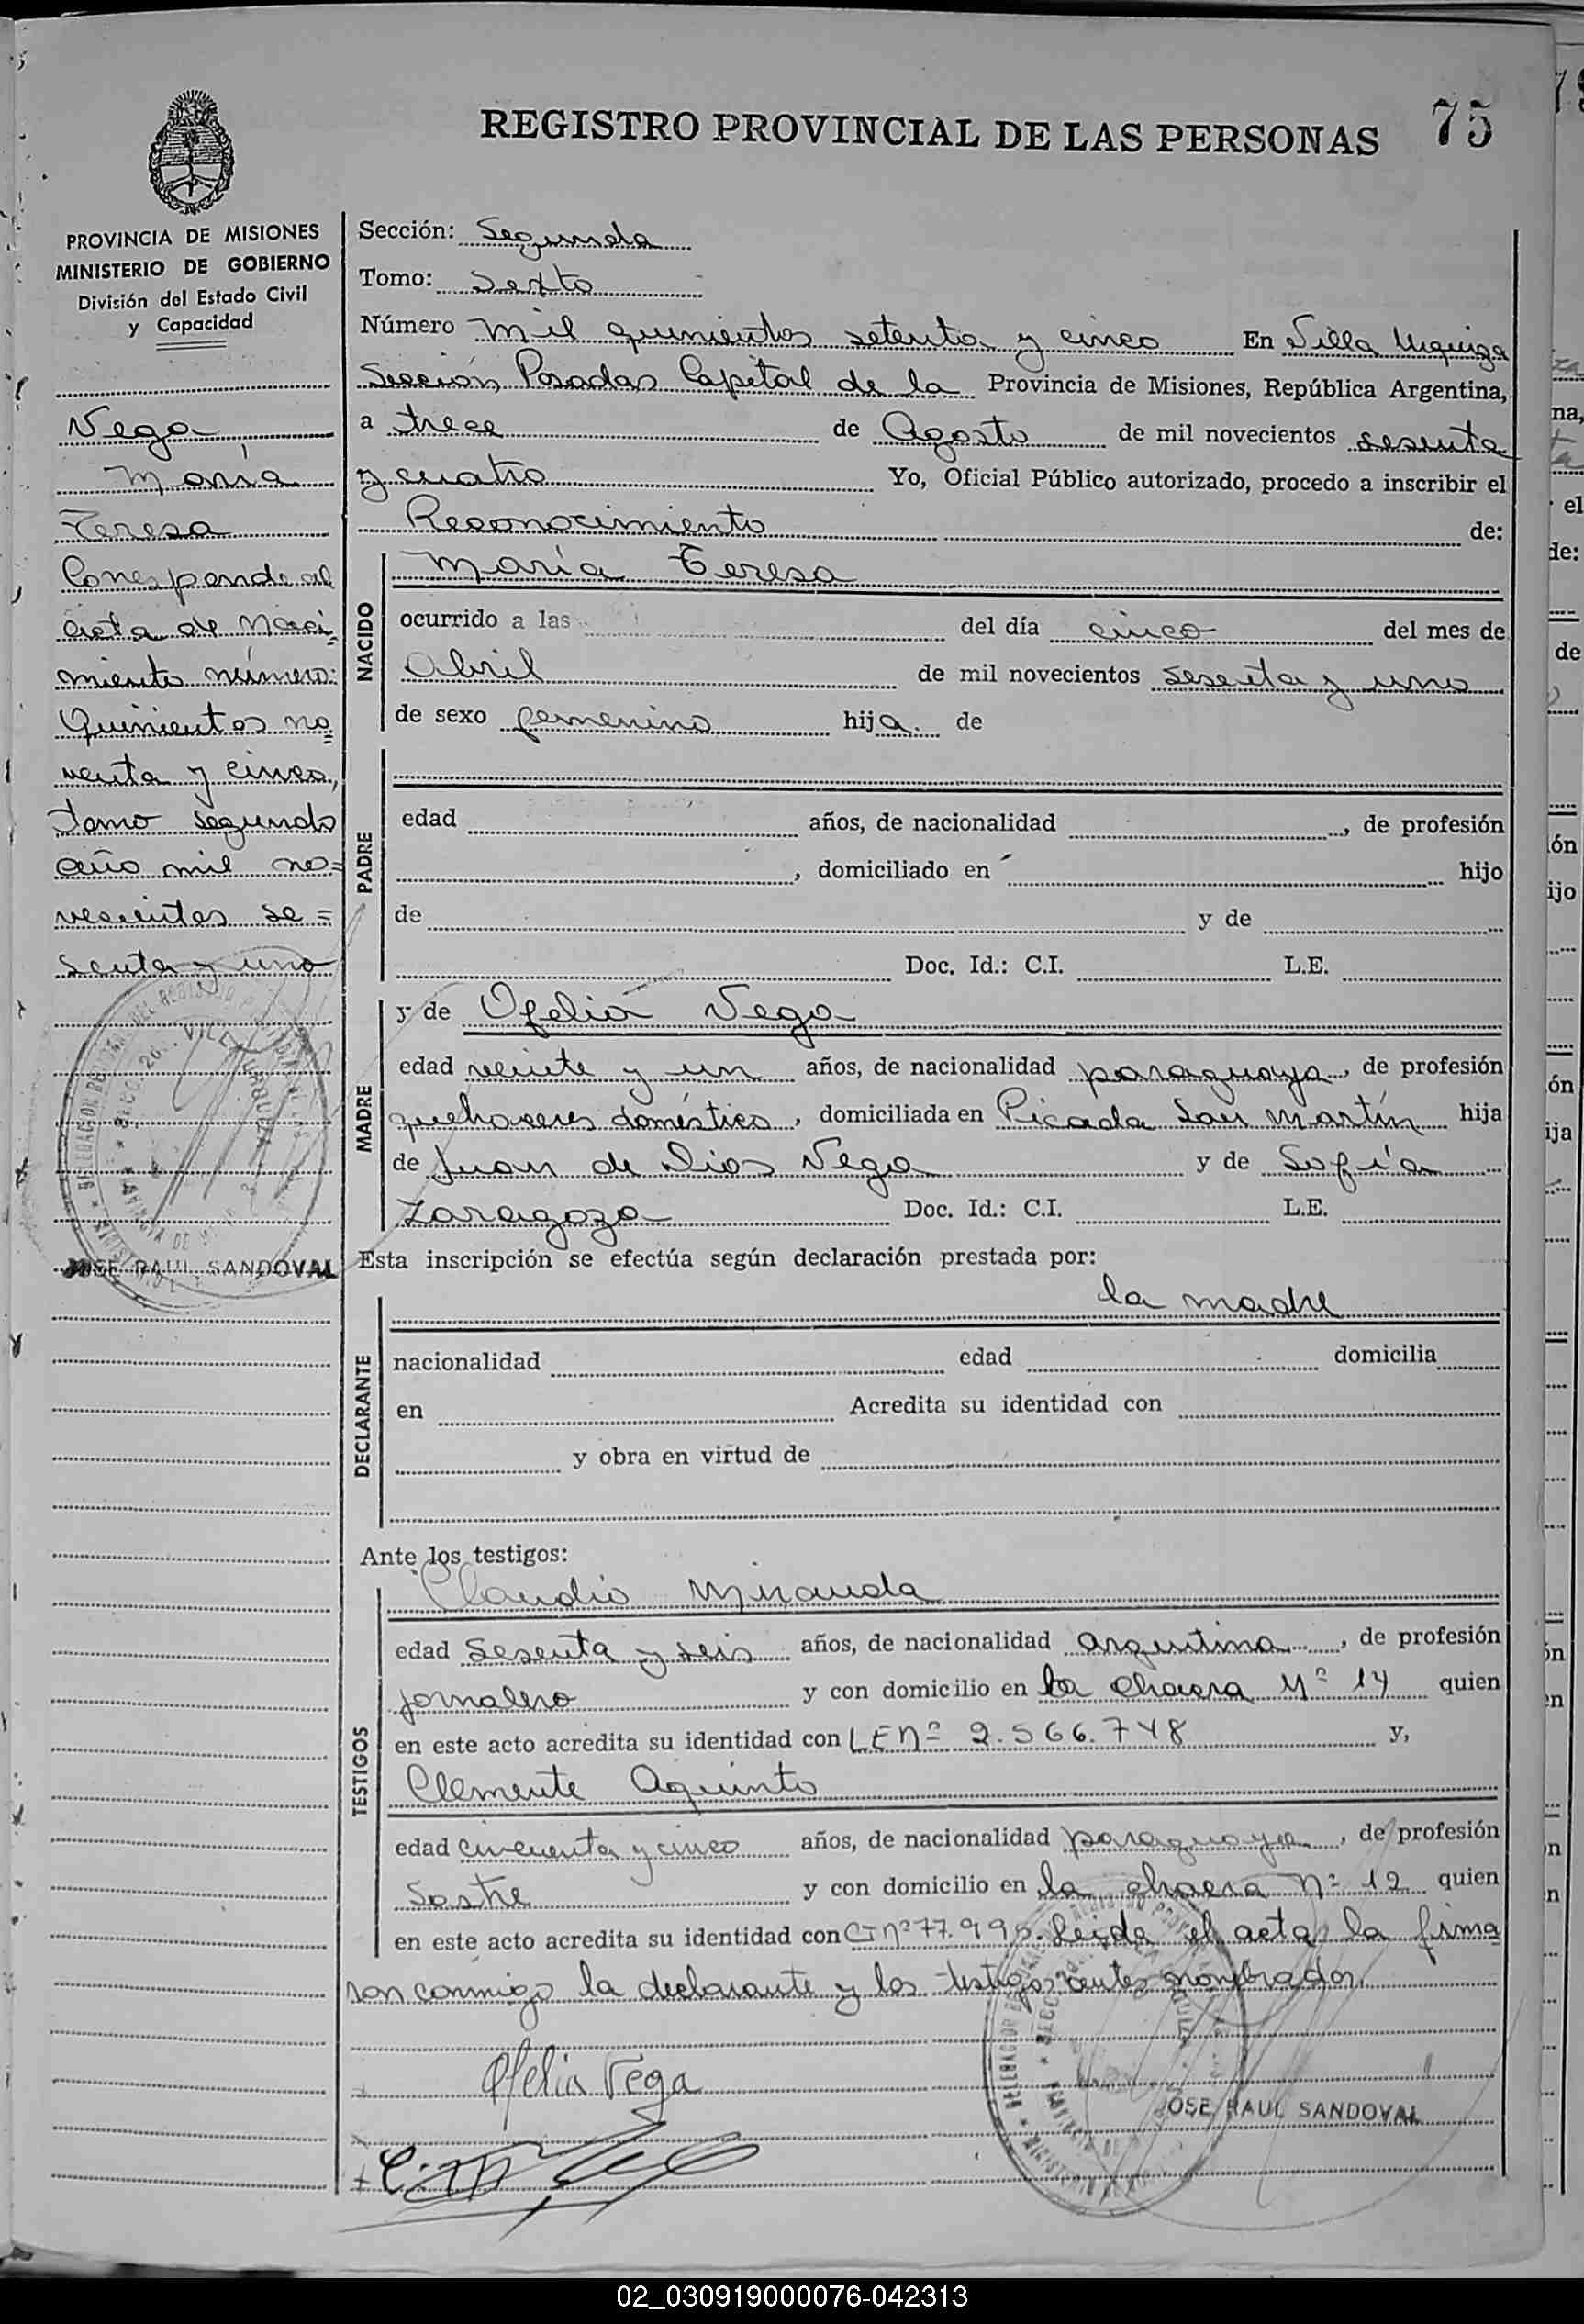 REGISTRO PROVINCIAL DE LAS PERSONAS 75
PROVINCIA DE MISIONES
MINISTERIO DE GOBIERNO
División del Estado Civil
y Capacidad
Vega
María
Teresa
Corresponde al
acta de Naci-
miento número:
Quinientos no
venta y cinco,
tomo segundo
año mil no=
vecientos se=
senta y uno
JOSE RAUL SANDOVAL
Sección: Segunda
Tomo: Sexto
Número mil quinientos setenta y cinco En Villa Urquiza
Sección, Posadas Capital de la Provincia de Misiones, República Argentina,
a trece de Agosto de mil novecientos sesenta
y cuatro Yo, Oficial Público autorizado, procedo a inscribir el
Reconocimiento de:
NACIDO
María Teresa
ocurrido a las del día cinco del mes de
Abril de mil novecientos sesenta y uno
de sexo femenino hija. de
PADRE
edad años, de nacionalidad , de profesión
, domiciliado en hijo
de y de
Doc. Id.: C.I. L.E.
MADRE
y de Ofelia Vega
edad veinte y un años, de nacionalidad paraguaya, de profesión
quehaceres doméstico, domiciliada en Picada San Martín hija
de Juan de Dios Vega y de Sofía
Zaragoza Doc. Id.: C.I. L.E.
Esta inscripción se efectúa según declaración prestada por:
la madre
DECLARANTE
nacionalidad edad domicilia
en Acredita su identidad con
y obra en virtud de
Ante los testigos:
TESTIGOS
Claudio Miranda
edad sesenta y seis años, de nacionalidad argentina, de profesión
jornalero y con domicilio en la chacra Nº 14 quien
en este acto acredita su identidad con LE nº 2.566.748 y,
Clemente Aquinto
edad cincuenta y cinco años, de nacionalidad paraguaya, de profesión
Sastre y con domicilio en la chacra nº 12 quien
en este acto acredita su identidad con CI nº 77.995. Leída el acta, la firma
ron conmigo la declarante y los testigos antes nombrados.
Ofelia Vega
JOSE RAUL SANDOVAL
02_030919000076-042313